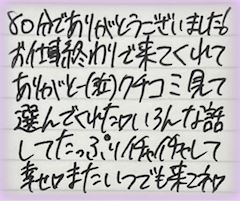 80分でありがとうございました!
お仕事終わりで来てくれて
ありがとー(泣)クチコミ見て
選んでくれたロいろんな話
してたっぷりイチャイチャして
幸せロまたいつでも来てネロ